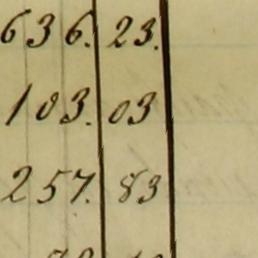 636. 23.
103. 03
257. 83